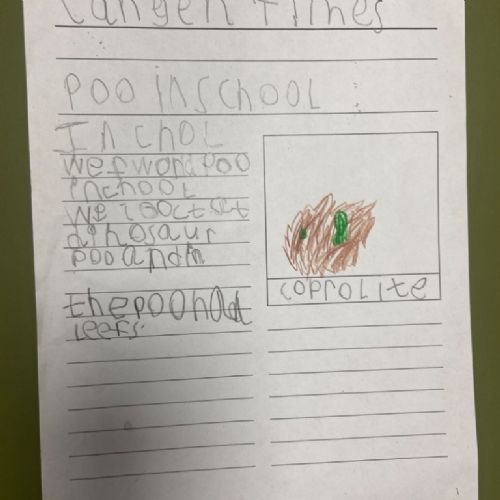 Langen times
Poo inschool
In chol
we fword poo
inchool
we
dinosaur
poo and in
the poo had
leefs.
coprolite